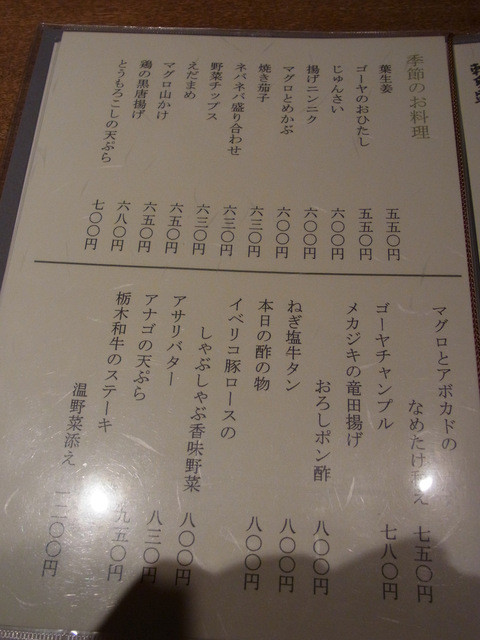 季節のお料理
葉生姜 五五〇円
ゴーヤのおひたし 五五〇円
じゅんさい 六〇〇円
揚げニンニク 六〇〇円
マグロとめかぶ 六〇〇円
焼き茄子 六三〇円
ネバネバ盛り合わせ 六三〇円
野菜チップス 六三〇円
えだまめ 六五〇円
マグロ山かけ 六五〇円
鶏の黒唐揚げ 六八〇円
とうもろこしの天ぷら 七〇〇円
マグロとアボカドの
なめたけ和え 七五〇円
ゴーヤチャンプル 七八〇円
メカジキの竜田揚げ
おろしポン酢 八〇〇円
ねぎ塩牛タン 八〇〇円
本日の酢の物 八〇〇円
イベリコ豚ロースの
しゃぶしゃぶ香味野菜 八〇〇円
アサリバター 八三〇円
アナゴの天ぷら 九五〇円
栃木和牛のステーキ
温野菜添え 一二〇〇円